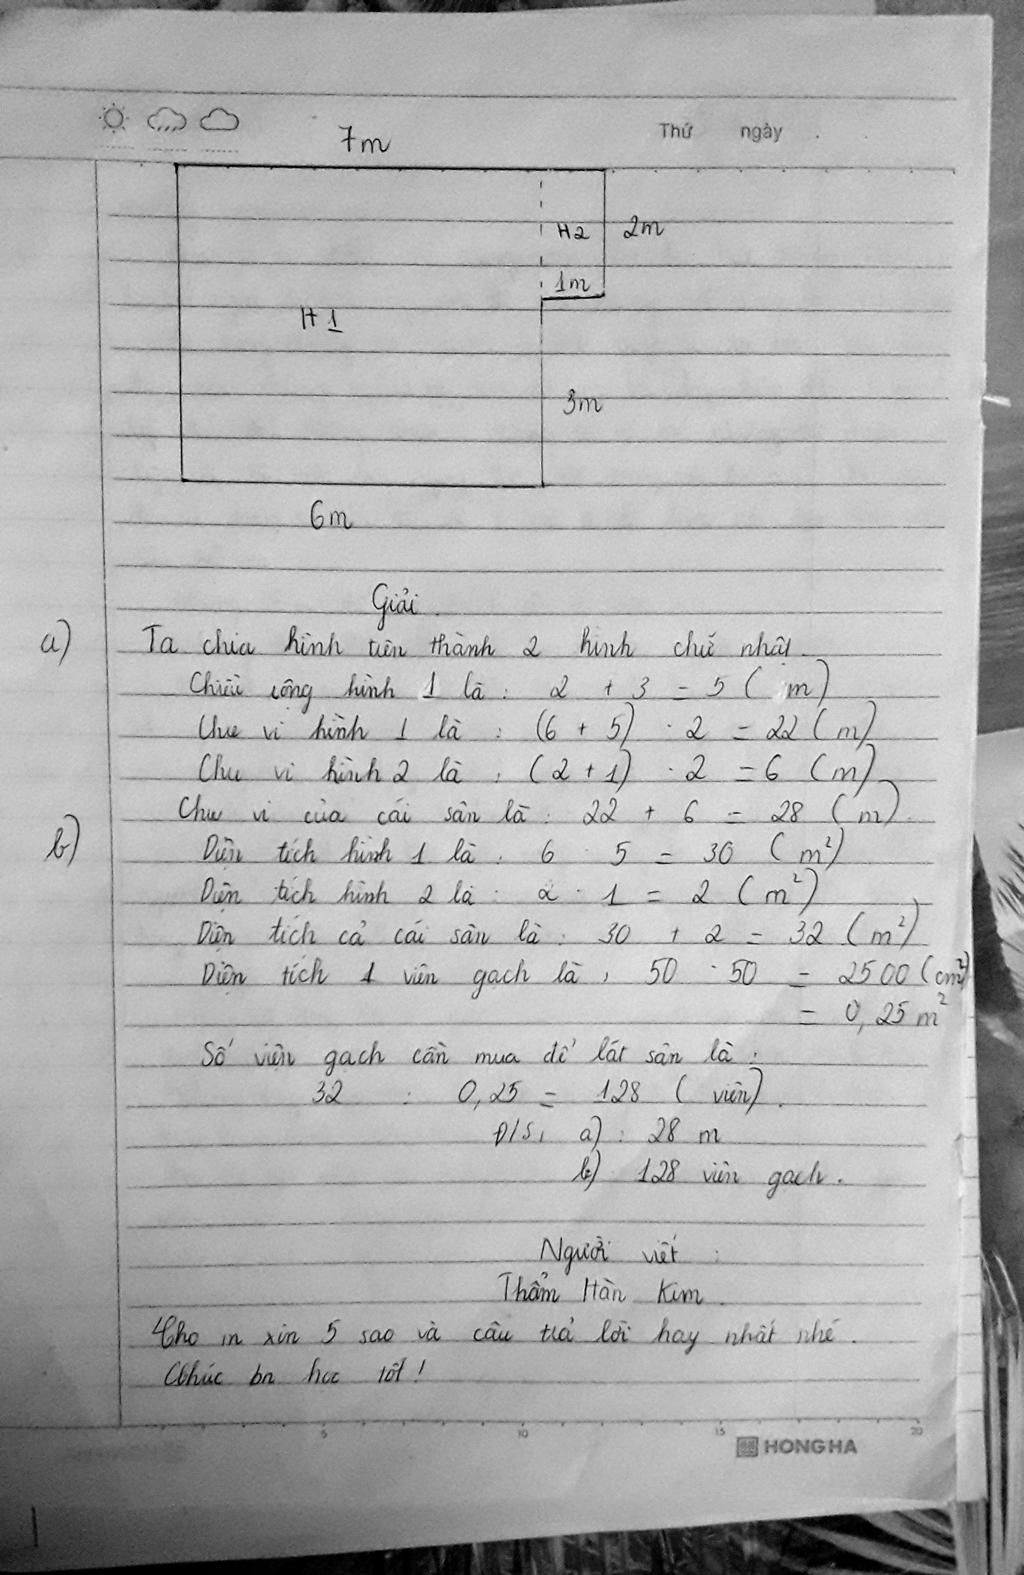 Thứ ngày
7m
H2 2m
1m
H 1
3m
6m
Giải.
a) Ta chia hình trên thành 2 hình chữ nhật.
Chiều rộng hình 1 là : 2 + 3 = 5 ( m)
Chu vi hình 1 là : (6 + 5) . 2 = 22 (m)
Chu vi hình 2 là : (2 + 1) . 2 = 6 (m)
Chu vi của cái sân là : 22 + 6 = 28 (m).
b) Diện tích hình 1 là : 6 . 5 = 30 (m²)
Diện tích hình 2 là : 2 . 1 = 2 (m²)
Diện tích cả cái sân là : 30 + 2 = 32 (m²)
Diện tích 1 viên gạch là : 50 . 50 = 2500 (cm²)
= 0,25 m²
Số viên gạch cần mua để lát sân là :
32 : 0,25 = 128 ( viên).
Đ/S: a) : 28 m
b) 128 viên gạch.
Người viết :
Thẩm Hàn Kim
Cho m xin 5 sao và câu trả lời hay nhất nhé.
Chúc bn học tốt !
5 10 15 20
HONG HA